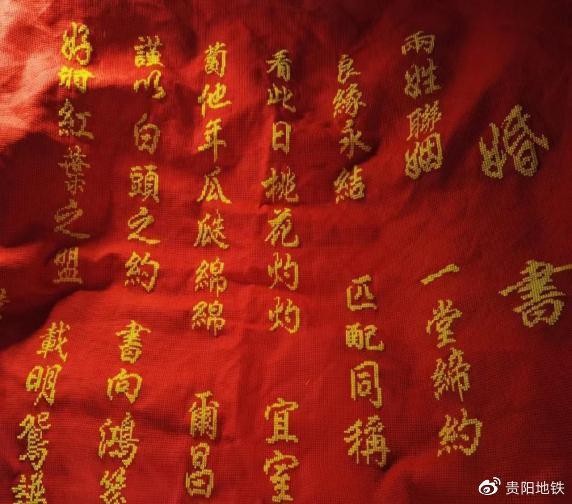 婚書
兩姓聯姻 一堂締約
良緣永結 匹配同稱
看此日桃花灼灼 宜室
蔔他年瓜瓞綿綿 爾昌
謹以白頭之約 書向鴻
好將紅葉之盟 載明鴛譜
贵阳地铁